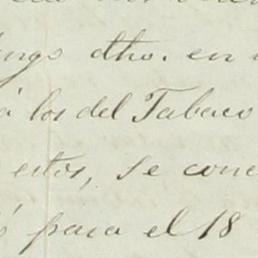 dho. en
á los del Tabaco
estos, se conc
para el 18